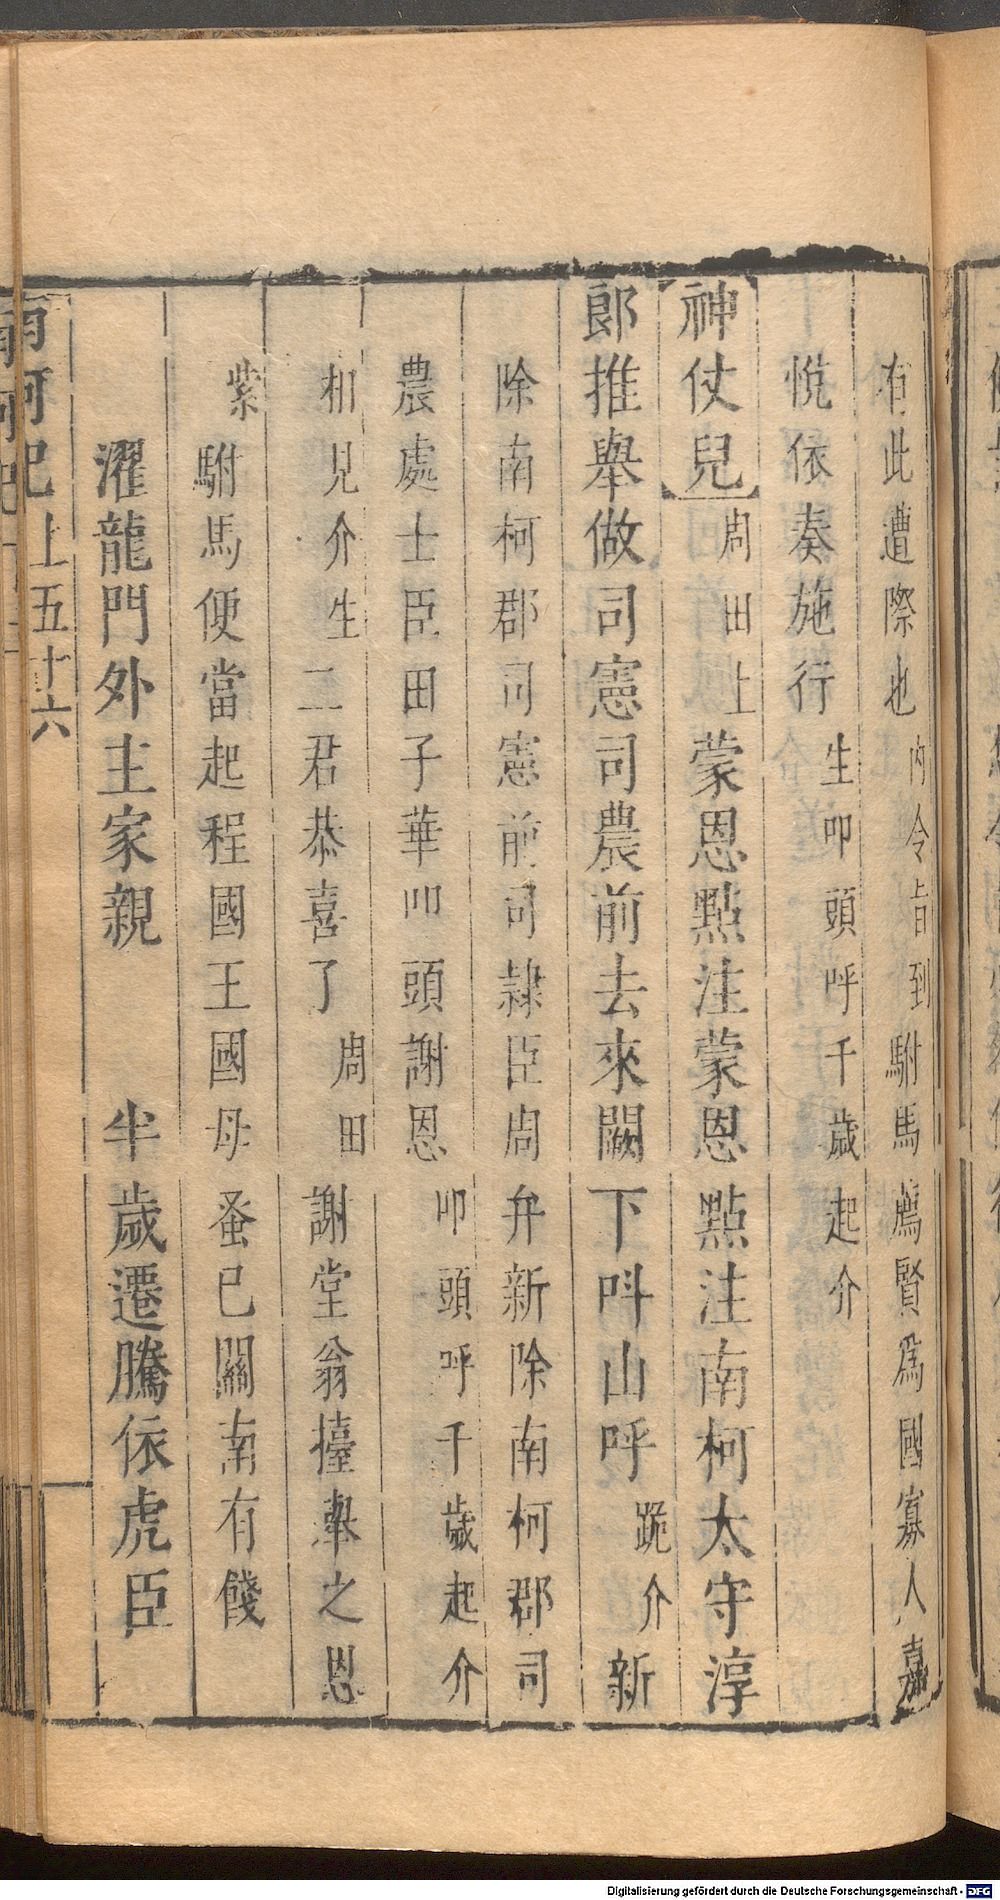 有此遭際也內令旨到駙馬薦賢爲國寡人嘉
悅依奏施行生叩頭呼千歲起介
神仗兒周田上蒙恩點注蒙恩點注南柯太守淳
郎推舉做司憲司農前去來闕下叫山呼跪介新
除南柯郡司憲前司隸臣周弁新除南柯郡司
農處士臣田子華叩頭謝恩叩頭呼千歲起介
相見介生二君恭喜了周田謝堂翁擡舉之恩
紫駙馬便當起程國王國母蚤已關南有餞
濯龍門外主家親 半歲遷騰依虎臣
南柯記上五十六
Digitalisierung gefördert durch die Deutsche Forschungsgemeinschaft - DFG